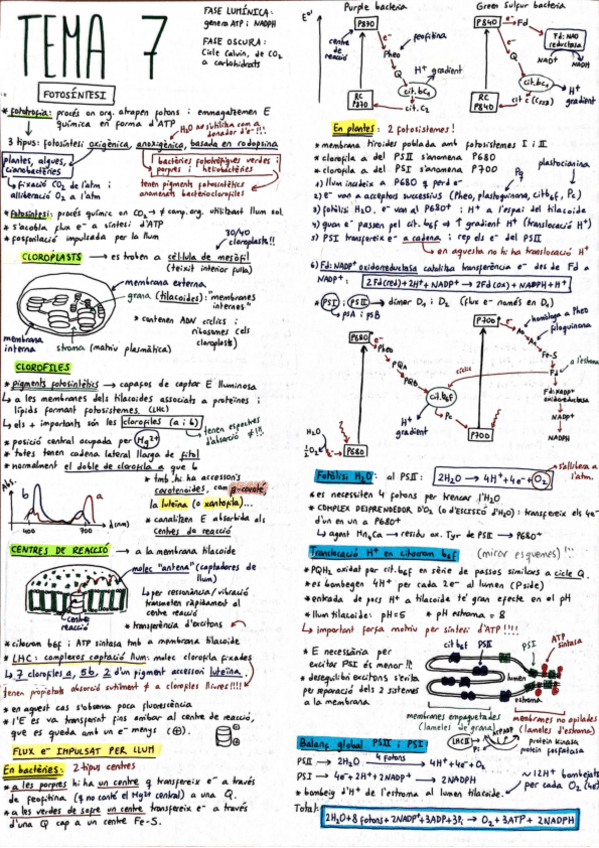 TEMA 7
FASE LUMÍNICA:
genera ATP i NADPH
FASE OSCURA:
Cicle Calvin, de CO2
a carbohidrats
FOTOSÍNTESI
* fototròfia: procés on org. atrapen fotons i emmagatzemen E
química en forma d'ATP
H2O se utilitza com a
donador d'e-!!!
3 tipus: fotosíntesi oxigènica, anoxigènica, basada en rodopsina
plantes, algues,
cianobactèries
bactèries fototròfiques verdes i
porpres i heliobactèries
↳ fixació CO2 de l'atm i
alliberació O2 a l'atm
tenen pigments fotosintètics
anomenats bacterioclorofiles
* Fotosíntesi: procés químic on CO2 → ≠ comp. org. utilitzant llum sol.
* s'acobla flux e- a síntesi d'ATP
* fosforilació impulsada per la llum
30/40
cloroplasts!!
CLOROPLASTS → es troben a cèl·lula de mesòfil
(teixit interior fulla)
membrana externa
grana (tilacoides): "membranes
internes"
* contenen ADN circular i
ribosomes (els
cloroplasts)
membrana
interna
stroma (matriu plasmàtica)
CLOROFILES
* pigments fotosintètics → capaços de captar E lluminosa
↳ a les membranes dels tilacoides associats a proteïnes i
lípids formant fotosistemes. (LHC)
↳ els + importants són les clorofiles (a i b)
tenen espectres
d'absorció ≠!!!
* posició central ocupada per Mg2+
* totes tenen cadena lateral llarga de fitol
* normalment el doble de clorofila a que b
* tmb. hi ha accessoris
carotenoides, com β-carotè,
la luteïna (o xantofila)...
* canalitzen E absorbida als
centres de reacció
Abs.
b
a
700
λ(nm)
CENTRES DE REACCIÓ → a la membrana tilacoide
molèc "antena" (captadores de
llum)
↳ per ressonància/vibració
transmeten ràpidament al
centre reacció
* transferència d'excitons
centre
reacció
* citocrom b6f i ATP sintasa tmb a membrana tilacoide
* LHC: complexos captació llum: molèc clorofila fixades
↳ 7 clorofiles a, 5 b, 2 d'un pigment accessori luteïna.
tenen propietats absorció sutilment ≠ a clorofiles lliures!!!!
* en aquest cas s'observa poca fluorescència
* l'E es va transferint fins arribar al centre de reacció,
que es queda amb un e- menys (+).
FLUX e- IMPULSAT PER LLUM
En bactèries: 2 tipus centres
* a les porpres hi ha un centre q transfereix e- a través
de feofitina (q no conté el Mg2+ central) a una Q.
* a les verdes de sofre un centre transfereix e- a través
d'una Q cap a un centre Fe-S.
Purple bacteria
Green sulfur bacteria
E°'
P870
centre
de reacció
e-
feofitina
Pheo
Q
H+
gradient
cit.bc1
cit.c2
RC
P870
P840
e-
Fd
Fd: NAD
reductasa
NAD+
NADH
Q
cit.bc1
H+
gradient
cit c (C553)
RC
P840
En plantes: 2 fotosistemes!
* membrana tilacoides poblada amb fotosistemes I i II
* clorofila a del PSII s'anomena P680
* clorofila a del PSI s'anomena P700
plastocianina
Pq
1) llum incideix a P680 q perd e-
2) e- van a acceptors successius (Pheo, plastoquinona, citb6f, Pc)
3) fotòlisi H2O. e- van al P680+ i H+ a l'espai del tilacoide
4) quan e- passen pel cit.b6f ⇒ ↑ gradient H+ (translocació H+)
5) PSI transfereix e- a cadena i rep els e- del PSII
↳ en aquesta no hi ha translocació H+
6) Fd:NADP+ oxidoreductasa catalitza transferència e- des de Fd a
NADP+: 2Fd(red)+2H+ + NADP+ → 2Fd(ox)+NADPH+H+
* PSI i PSII → dímer D1 i D2 (flux e- només en D1)
↳ psA i psB
homòloga a Pheo
filoquinona
P680*
Pheo
PQA
PQB
e-
cit.b6f
H+
gradient
Pc
H2O
½O2
P680
P700*
Fe-S
Fd
a l'estroma
cíclic
Fd:NADP+
oxidoreductasa
NADP+
NADPH
P700
Fotòlisi H2O: al PSII: 2H2O → 4H+ + 4e- + O2
s'allibera a
l'atm.
* es necessiten 4 fotons per trencar l'H2O
* COMPLEX DESPRENEDOR D'O2 (o d'ESCISSIÓ d'H2O): transfereix els 4e-
d'un en un a P680+
↳ agent Mn4Ca → residu ox. Tyr de PSII → P680+
Translocació H+ en citocrom b6f (mirar esquemes)!!!
* PQH2 oxidat per cit.b6f en sèrie de passos similars a cicle Q.
* es bombegen 4H+ per cada 2e- al lumen (P side)
* entrada de pocs H+ a tilacoide té gran efecte en el pH
* llum tilacoide: pH=5 * pH estroma = 8
↳ important força motriu per síntesi d'ATP!!!!
* E necessària per
excitar PSI és menor!!
* desequilibri excitons s'evita
per separació dels 2 sistemes
a la membrana
cit b6f
PSII
PSI
ATP
sintasa
lumen
estroma
membranes empaquetades
(lamel·les de grana)
membranes no apilades
(lamel·les d'estroma)
LHCII
proteïn kinasa
proteïn fosfatasa
Balanç global PSII i PSI
PSII → 2H2O 4 fotons → 4H+ + 4e- + O2
PSI → 4e- + 2H+ + 2NADP+ → 2NADPH
~12H+ bombejats
per cada O2 (4e-)
* bombeig d'H+ de l'estroma al lumen tilacoide.
Total:
2H2O+8 fotons+2NADP+ +3ADP+3Pi → O2+3ATP+2NADPH